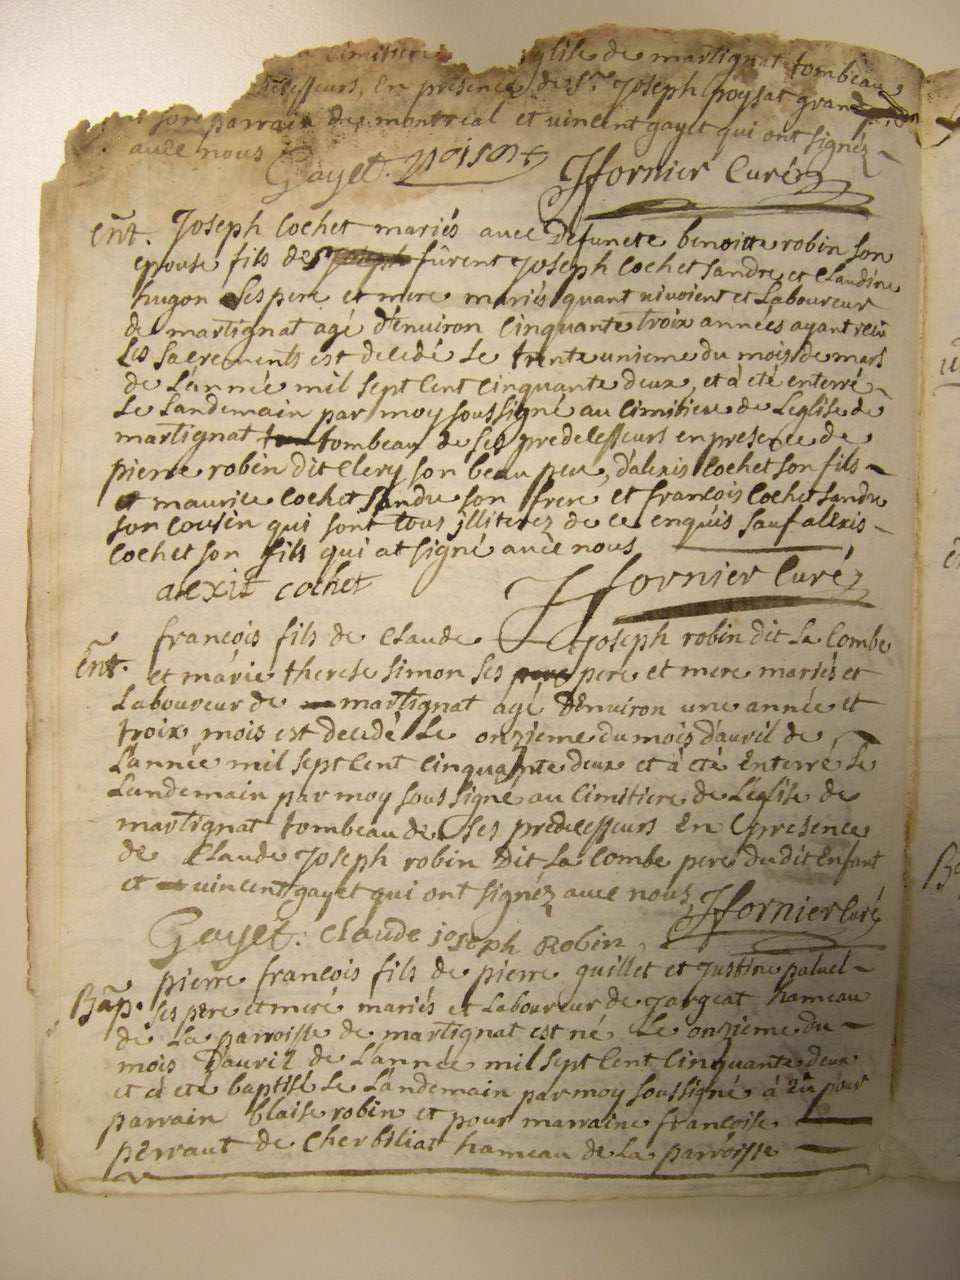 cimitiere eglise de martignat tombeau
En presence de Sr. Joseph poysat grand
son parrain de montreal et vincent gayet qui ont signéz
avec nous
Gayet. JJfornier Curé
Ent. Joseph Cochet mariés avec Defuncte benoitte robin son
epouse fils de fûrent Joseph Cochet sandre et Claudine
hugon Ses pere et mere mariés quant vivoient et Laboureur
de martignat agé d'environ Cinquante troix années ayant reçu
Les Sacrements est decedé Le trente unieme du mois de mars
de L'année mil sept Cent cinquante deux, et à eté enterré
Le Landemain par moy soussigné au Cimitiere de Leglise de
martignat tombeau de Ses predecesseurs en presence de
pierre robin dit Clery son beau pere, d'alexis Cochet son fils
et maurice Cochet Sandre son frere et françois Cochet Sandre
son Cousin qui sont tous illiterez de ce enquis sauf alexis
Cochet son fils qui at signé avec nous
alexit cochet JJfornier Curé
françois fils de Claude Joseph robin dit La Combe
Ent. et marie therese Simon Ses pere et mere mariés et
Laboureur de martignat agé D'environ une année et
troix mois est decedé Le onzieme du mois d'avril de
L'année mil sept Cent cinquante deux et à eté Enterré Le
Landemain par moy soussigné au Cimitiere de L'eglise de
martignat tombeau de Ses predecesseurs En presence
de Claude Joseph robin Dit La Combe pere du dit Enfant
et vincent gayet qui ont signéz avec nous JJfornier Curé
Gayet. claude joseph Robin
pierre françois fils de pierre guillet et Justine paluel
Bap. Ses pere et mere mariés et Laboureur de Jargeat hameau
de La parroisse de martignat est né Le onzieme du
mois D'avril de L'année mil sept Cent Cinquante deux
et à eté baptisé Le Landemain par moy soussigné à eu pour
parrain blaise robin et pour marraine françoise
perraut de Cherbiliat hameau de La parroisse